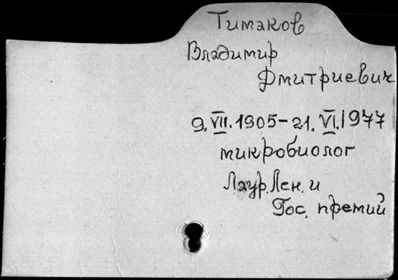 Тимаков
Владимир
Дмитриевич
9.VII.1905-21.VI.1977
микробиолог
Лаур. Лен. и
Гос. премий